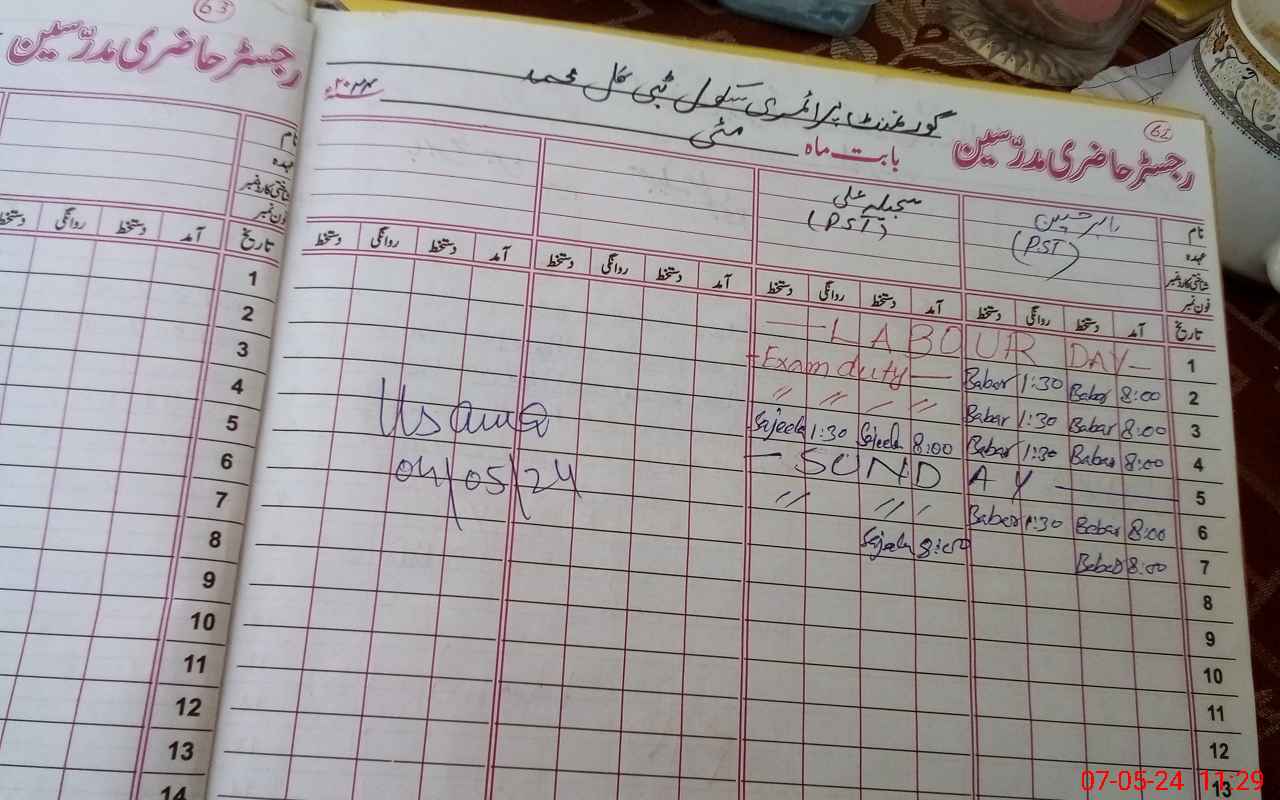 63
رجسٹر حاضری مدرّسین
نام
عہدہ
شناختی کارڈ نمبر
فون نمبر
تاریخ آمد دستخط روانگی دستخط
1
2
3
4
5
6
7
8
9
10
11
12
13
14
61
رجسٹر حاضری مدرّسین گورنمنٹ پرائمری سکول ٹبی گل محمد
بابت ماہ مئی ۲۰۲۴ء
نام بابر حسین سجیلہ علی
عہدہ (PST) (PST)
شناختی کارڈ نمبر
فون نمبر
تاریخ آمد دستخط روانگی دستخط آمد دستخط روانگی دستخط آمد دستخط روانگی دستخط آمد دستخط روانگی دستخط
— LABOUR DAY — 1
- Exam duty — Babar 1:30 Babar 8:00 2
〃 〃 〃 〃 Babar 1:30 Babar 8:00 3
Sajeela 1:30 Sajeela 8:00 Babar 1:30 Babar 8:00 4
— SUNDAY — 5
〃 〃 〃 Babar 1:30 Babar 8:00 6
Sajeela 8:00 Babar 8:00 7
8
9
10
11
12
13
Usama
04/05/24
07-05-24 11:29